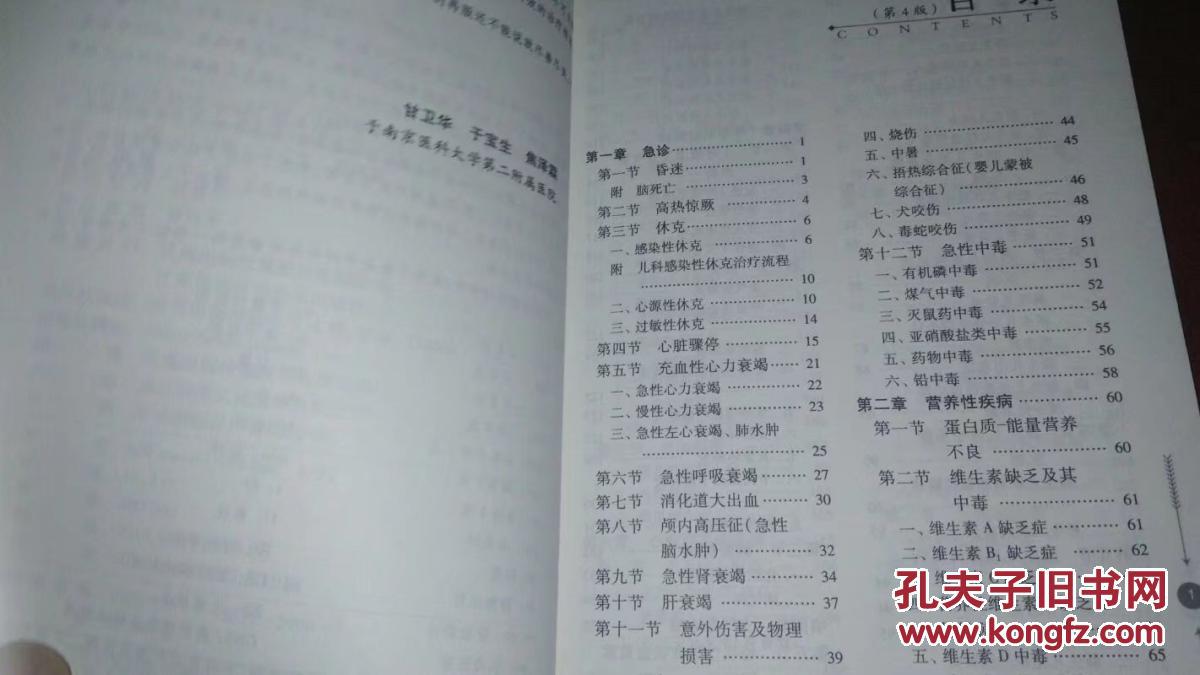 甘卫华 于宝生 焦泽霖
于南京医科大学第二附属医院
(第4版)
CONTENTS
第一章 急诊……1
第一节 昏迷……1
附 脑死亡……3
第二节 高热惊厥……4
第三节 休克……6
一、感染性休克……6
附 儿科感染性休克治疗流程
……10
二、心源性休克……10
三、过敏性休克……14
第四节 心脏骤停……15
第五节 充血性心力衰竭……21
一、急性心力衰竭……22
二、慢性心力衰竭……23
三、急性左心衰竭、肺水肿
……25
第六节 急性呼吸衰竭……27
第七节 消化道大出血……30
第八节 颅内高压征(急性
脑水肿)……32
第九节 急性肾衰竭……34
第十节 肝衰竭……37
第十一节 意外伤害及物理
损害……39
四、烧伤……44
五、中暑……45
六、捂热综合征(婴儿蒙被
综合征)……46
七、犬咬伤……48
八、毒蛇咬伤……49
第十二节 急性中毒……51
一、有机磷中毒……51
二、煤气中毒……52
三、灭鼠药中毒……54
四、亚硝酸盐类中毒……55
五、药物中毒……56
六、铅中毒……58
第二章 营养性疾病……60
第一节 蛋白质-能量营养
不良……60
第二节 维生素缺乏及其
中毒……61
一、维生素A缺乏症……61
二、维生素B₁缺乏症……62
五、维生素D中毒……65
1
孔夫子旧书网
www.kongfz.com